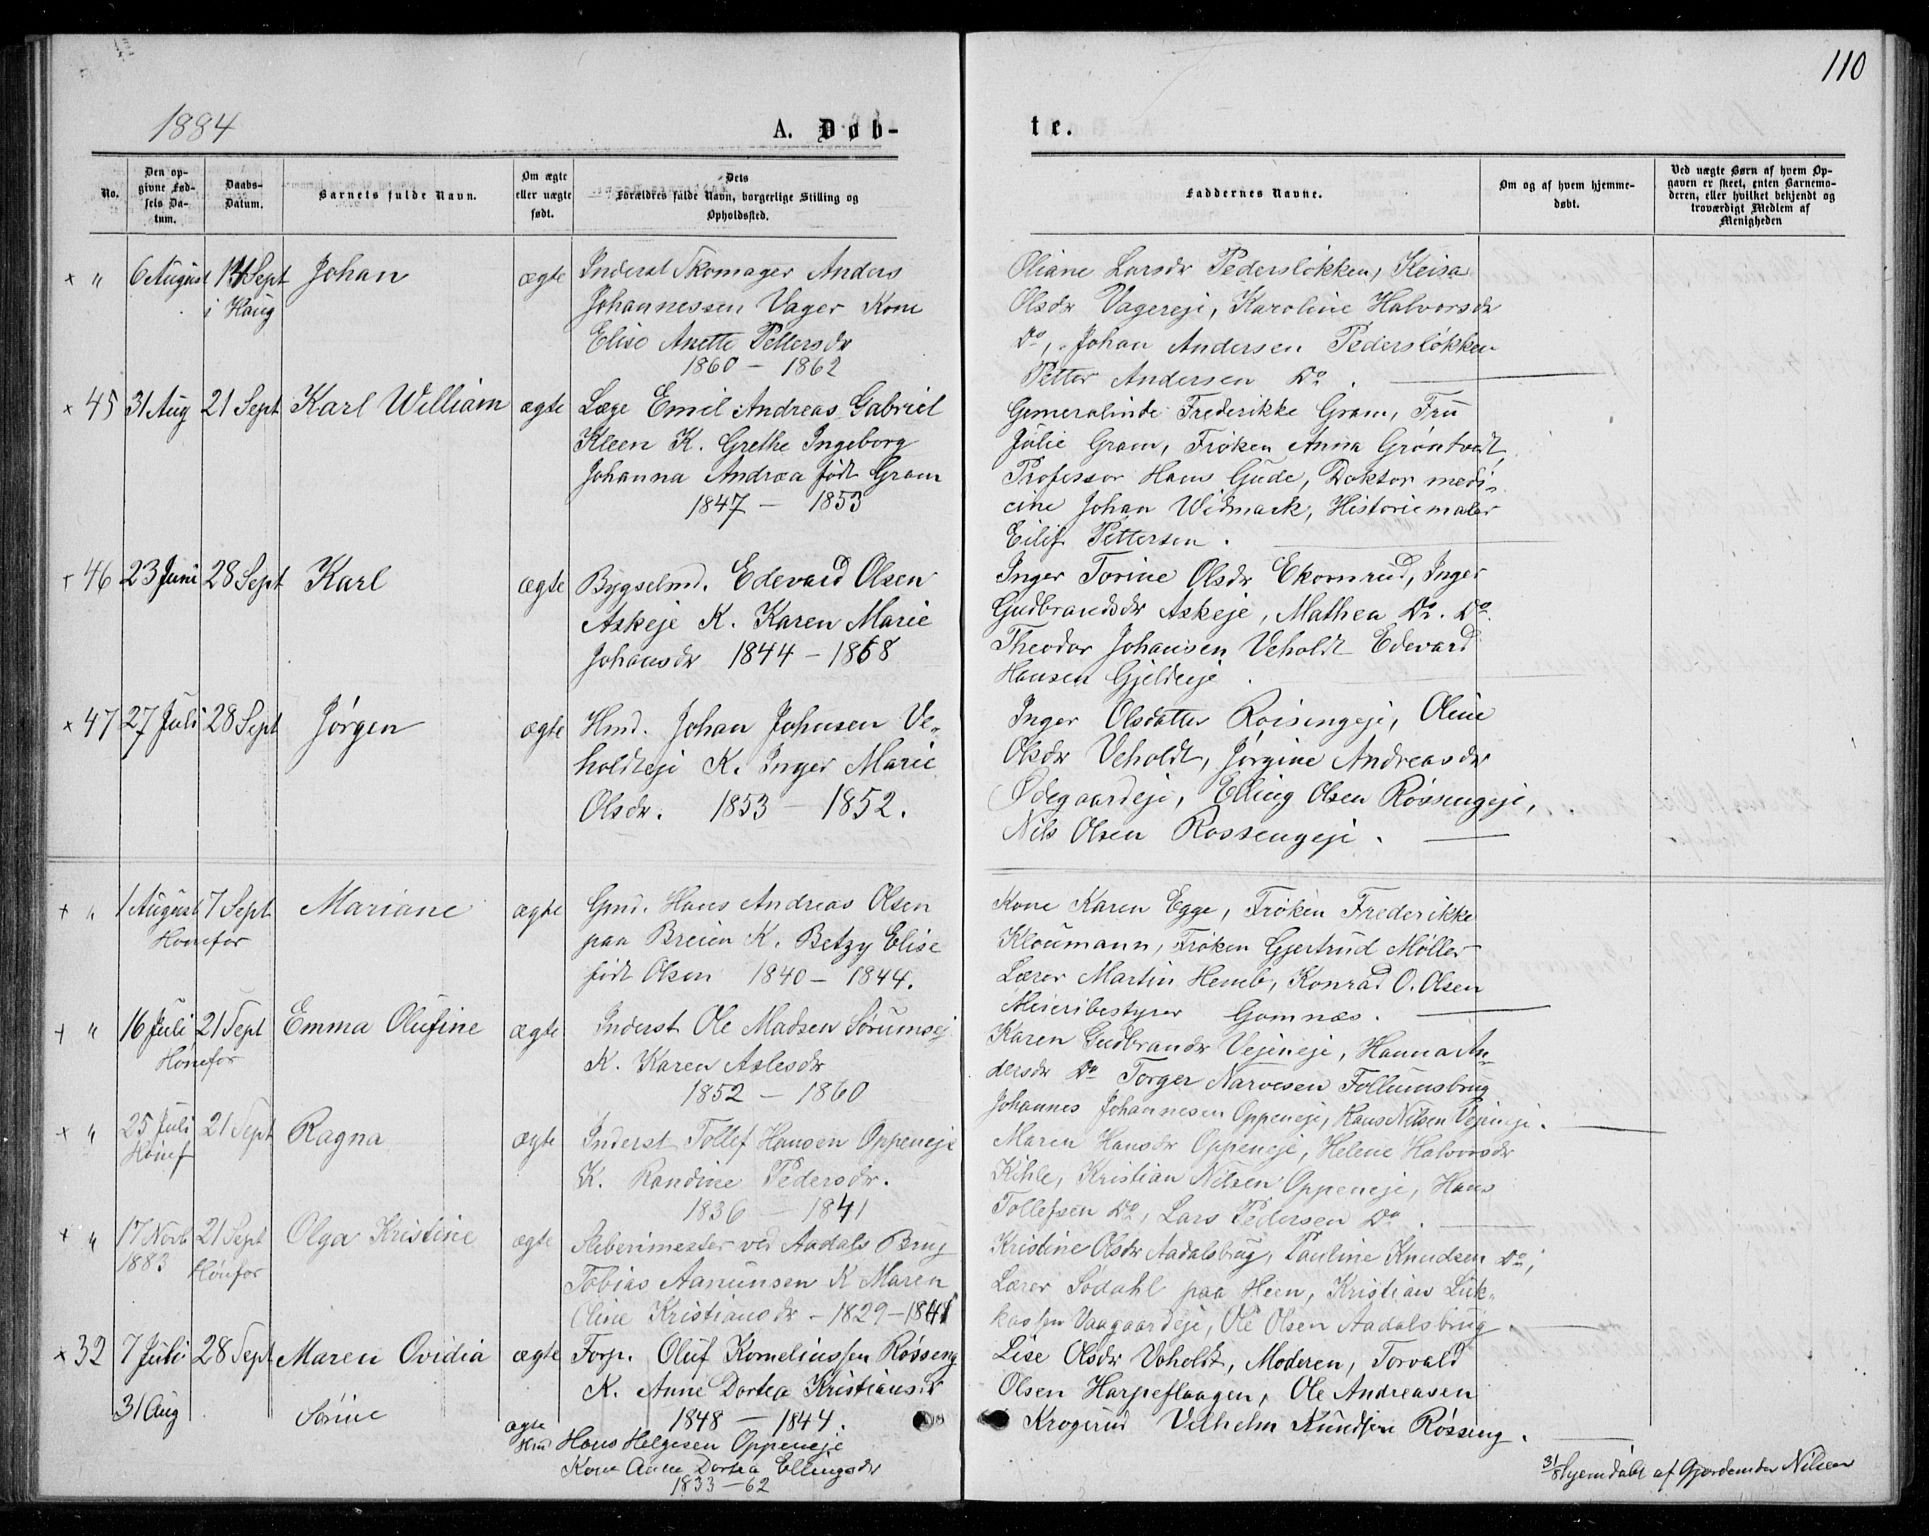 110
1884
A. Døb-
te.
No.
Den op-
givne Fød-
sels Da-
tum.
Daabs-
Datum.
Barnets fulde Navn.
Om ægte
eller uægte
født.
Dets
Forældres fulde Navn, borgerlige Stilling og
Opholdssted.
Faddernes Navne.
Om og af hvem hjemme-
døbt.
Ved uægte Børn af hvem Op-
gaven er skeet, enten Barnemo-
deren, eller hvilket bekjendt og
troværdigt Medlem af
Menigheden
× " 6 August 14 Sept Johan ægte Inderst Skomager Anders
i Haug
Johannessen Vager Kone
Elise Anette Pettersdr
1860 - 1862
Oliane Larsdr Pedersløkken, Keisa
Olsdr Vagereje, Karoline Halvorsdr
Do, Johan Andersen Pedersløkken
Petter Andersen Do.
× 45 31 Aug 21 Sept Karl William ægte Læge Emil Andreas Gabriel
Kleen K. Grethe Ingeborg
Johanna Andrea født Gram
1847 - 1853
Generalinde Frederikke Gram, Fru
Julie Gram, Frøken Anna Grøntvedt,
Professor Hans Gude, Doktor medi-
cine Johan Widmark, Historiemaler
Eilif Pettersen.
× 46 23 Juni 28 Sept Karl ægte Bygselmd. Edevard Olsen
Askeje K. Karen Marie
Johansdr 1844 - 1858
Inger Torine Olsdr Ekornrud, Inger
Gudbrandsdr Askeje, Mathea Do. Do.
Theodor Johansen Veholdt Edevard
Hansen Gjeldeje.
× 47 27 Juli 28 Sept Jørgen ægte Hmd. Johan Johnsen Ve-
holdteje K. Inger Marie
Olsdr. 1853 - 1852.
Inger Olsdatter Roisengeje, Oline
Olsdr Veholdt, Jørgine Andreasdr
Ødegaardeje, Elling Olsen Røssengeje,
Nils Olsen Rossengeje.
+ " 1 August 7 Sept Mariane ægte Gmd. Hans Andreas Olsen
Honefor
paa Breien K. Betzy Elise
født Olsen 1840 - 1844.
Kone Karen Egge, Frøken Frederikke
Kloumann, Frøken Gjertrud Møller
Lærer Martin Hemb, Konrad O. Olsen
Meieribestyrer Gomnæs.
+ " 16 Juli 21 Sept Emma Olufine ægte Inderst Ole Madsen Sørumsej
Hønefor
K. Karen Aslesdr
1852 - 1860
Karen Gudbrandsdr Vejeneje, Hanna An-
dersdr Do Torger Narvesen Follumsbrug
Johannes Johannesen Oppeneje, Hans Nilsen Vejeneje.
× " 25 Juli 21 Sept Ragna ægte Inderst Tollef Hansen Oppeneje
Hønef
K. Randine Pedersdr.
1836 - 1841
Maren Hansdr Oppeneje, Helene Halvorsdr
Kihle, Kristian Nilsen Oppeneje, Hans
Tollefsen Do, Lars Pedersen Do.
× " 17 Novb 21 Sept Olga Kristine ægte Sliberimester ved Aadals Brug
1883 Hønfor
Tobias Aanunsen K Maren
Oline Kristiansdr - 1829 - 1841
Kristine Olsdr Aadalsbrug, Pauline Knudsen Do,
Lærer Sødahl paa Heen, Kristian Luk-
kassen Vaagaardeje, Ole Olsen Aadalsbrug.
× 32 7 Juli 28 Sept Maren Ovidia ægte Forp. Oluf Korneliussen Røsseng
K. Anne Dortea Kristiansdr
1848 - 1844.
Lise Olsdr Voholdt, Moderen, Torvald
Olsen Harpeflaagen, Ole Andreasen
Krogerud Velhelm Knudsen Røsseng.
31 Aug Sørine ægte Hmd Hans Helgesen Oppeneje
Kone Anne Dortea Ellingsdr
1833 - 62
31/8 hjemdøbt af Gjordemoder Nilsen